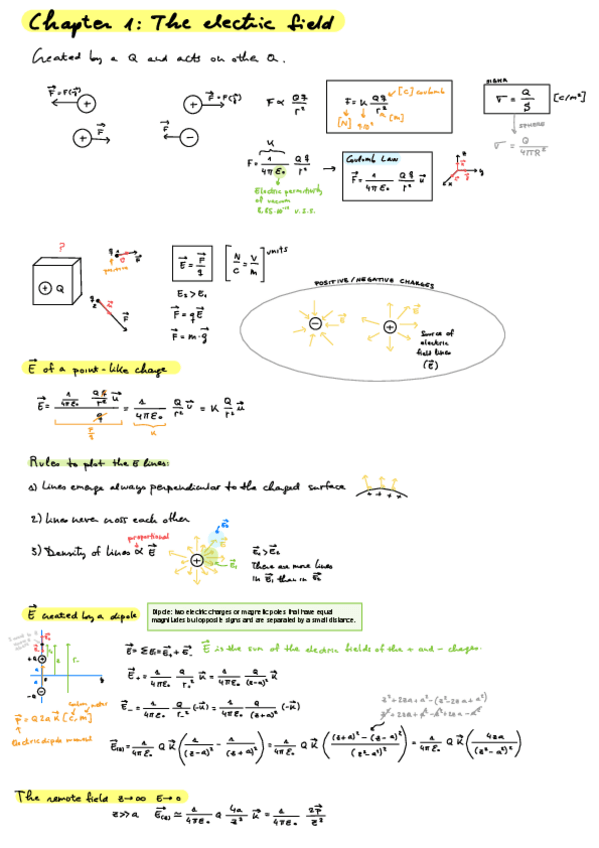 Chapter 1: The electric field
Created by a Q and acts on other Q.
F ∝ Qq/r²
F = K Qq/r²
[C] coulomb
[N]
[m]
SIGMA
σ = Q/S [C/m²]
SPHERE
σ = Q/4πR²
K
F = 1/4πε₀ Qq/r² →
Electric permittivity
of vacuum
Coulomb Law
F⃗ = 1/4πε₀ Qq/r² u⃗
?
+ Q
E⃗ = F⃗/q [N/C = V/m] units
E₂ > E₁
F⃗ = qE⃗
F⃗ = m·g⃗
POSITIVE/NEGATIVE CHARGES
Source of
electric
field lines
(E⃗)
E⃗ of a point-like charge
E⃗ = (1/4πε₀ Qq/r² u⃗)/q = 1/4πε₀ Q/r² u⃗ = K Q/r² u⃗
F/q
K
Rules to plot the E lines:
1) Lines emerge always perpendicular to the charged surface
2) Lines never cross each other
proportional
3) Density of lines ∝ E⃗
E⃗₁ > E⃗₂
There are more lines
in E⃗₁ than in E⃗₂
E⃗ created by a dipole
Dipole: two electric charges or magnetic poles that have equal
magnitudes but opposite signs and are separated by a small distance.
E⃗ = ΣEi = E⃗₊ + E⃗₋ E⃗ is the sum of the electric fields of the + and - charges.
E⃗₊ = 1/4πε₀ Q/r₊² k⃗ = 1/4πε₀ Q/(z-a)² k⃗
E⃗₋ = 1/4πε₀ Q/r₋² (-k⃗) = 1/4πε₀ Q/(z+a)² (-k⃗)
z²+2za+a²-(z²-2za+a²)
z²+2za+a²-z²+2za-a²
P⃗ = Q2a k⃗ [C·m]
Electric dipole moment
E⃗(z) = 1/4πε₀ Q k⃗ (1/(z-a)² - 1/(z+a)²) = 1/4πε₀ Q k⃗ ((z+a)²-(z-a)²/(z²-a²)²) = 1/4πε₀ Q k⃗ (4za/(z²-a²)²)
The remote field z→∞ E→0
z>>a E⃗(z) ≃ 1/4πε₀ Q 4a/z³ k⃗ = 1/4πε₀ 2P⃗/z³